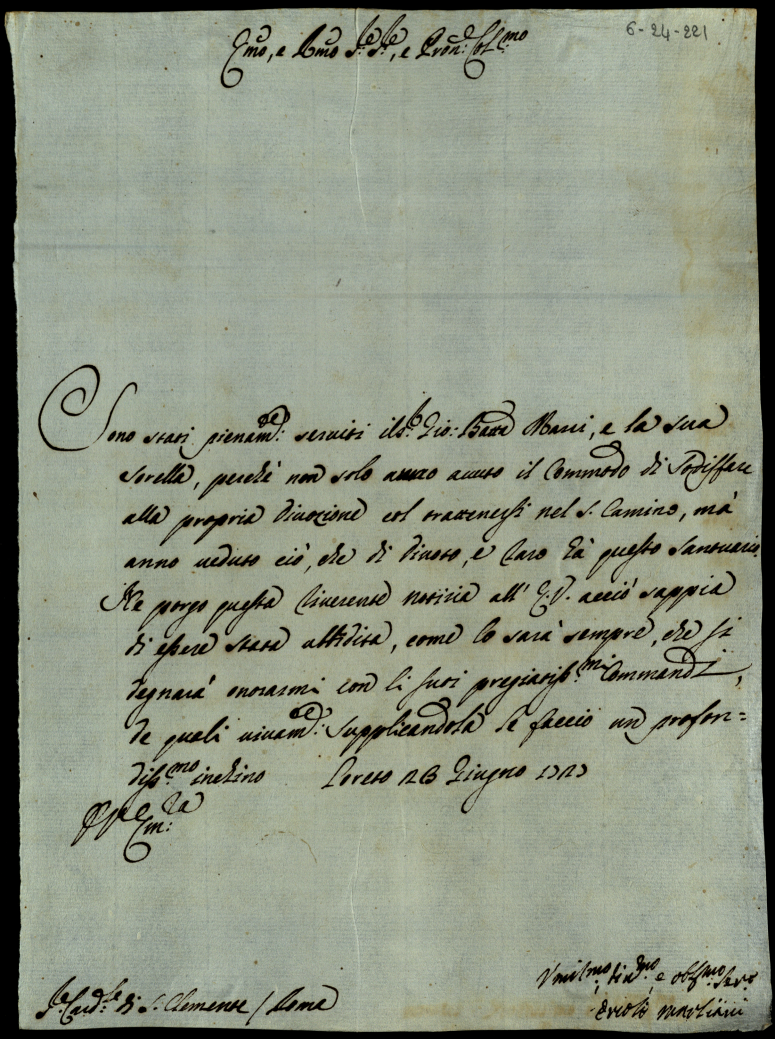 6-24-221
Emo, e Rmo Sre Sre, e Prone Colmo
Sono stati pienamte: serviti il Sr: Gio: Batta Massi, e la sua
sorella, perchè non solo anno auuto il Commodo di Sodisfare
alla propria divozione col trattenersi nel S. Camino, mà
anno veduto ciò, che di divoto, e raro hà questo Santuario.
Ne porgo questa riverente notizia all' E. V. acciò sappia
di essere stata ubbidita, come lo sarà sempre, che si
degnarà onorarmi con li suoi pregiatiss:mi Commandi,
de quali vivamte: supplicandola le faccio un profon=
diss:mo inchino Loreto 28 Giugno
Em:za
Sre Cardle di S. Clemente / Roma
Vmilmo, divmo, e obbmo Servo
Ercole